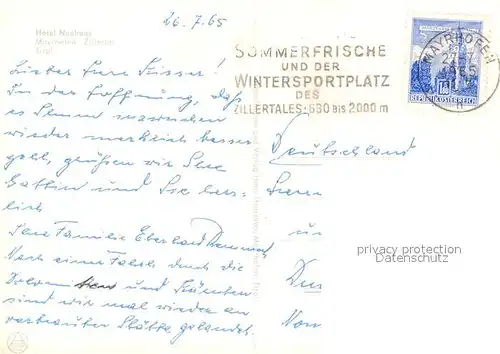 26.7.65
Hotel Neuhaus
Mayrhofen Zillertal
Tirol
SOMMERFRISCHE
UND DER
WINTERSPORTPLATZ
DES
ZILLERTALES · 630 bis 2000 m
MAYRHOFEN
REPUBLIK ÖSTERREICH
Lieber Herr Süsser!
In der Hoffnung, daß
es Ihnen inzwischen
wieder merklich besser
geht, grüßen wir Ihre
Gattin und Sie herz-
lich
Ihre Familie Eberhard
Nach einer Fahrt durch die
Dolomiten und Kärnten
sind wir mal wieder an
vertrauter Stätte gelandet.
Deutschland
privacy protection
Datenschutz